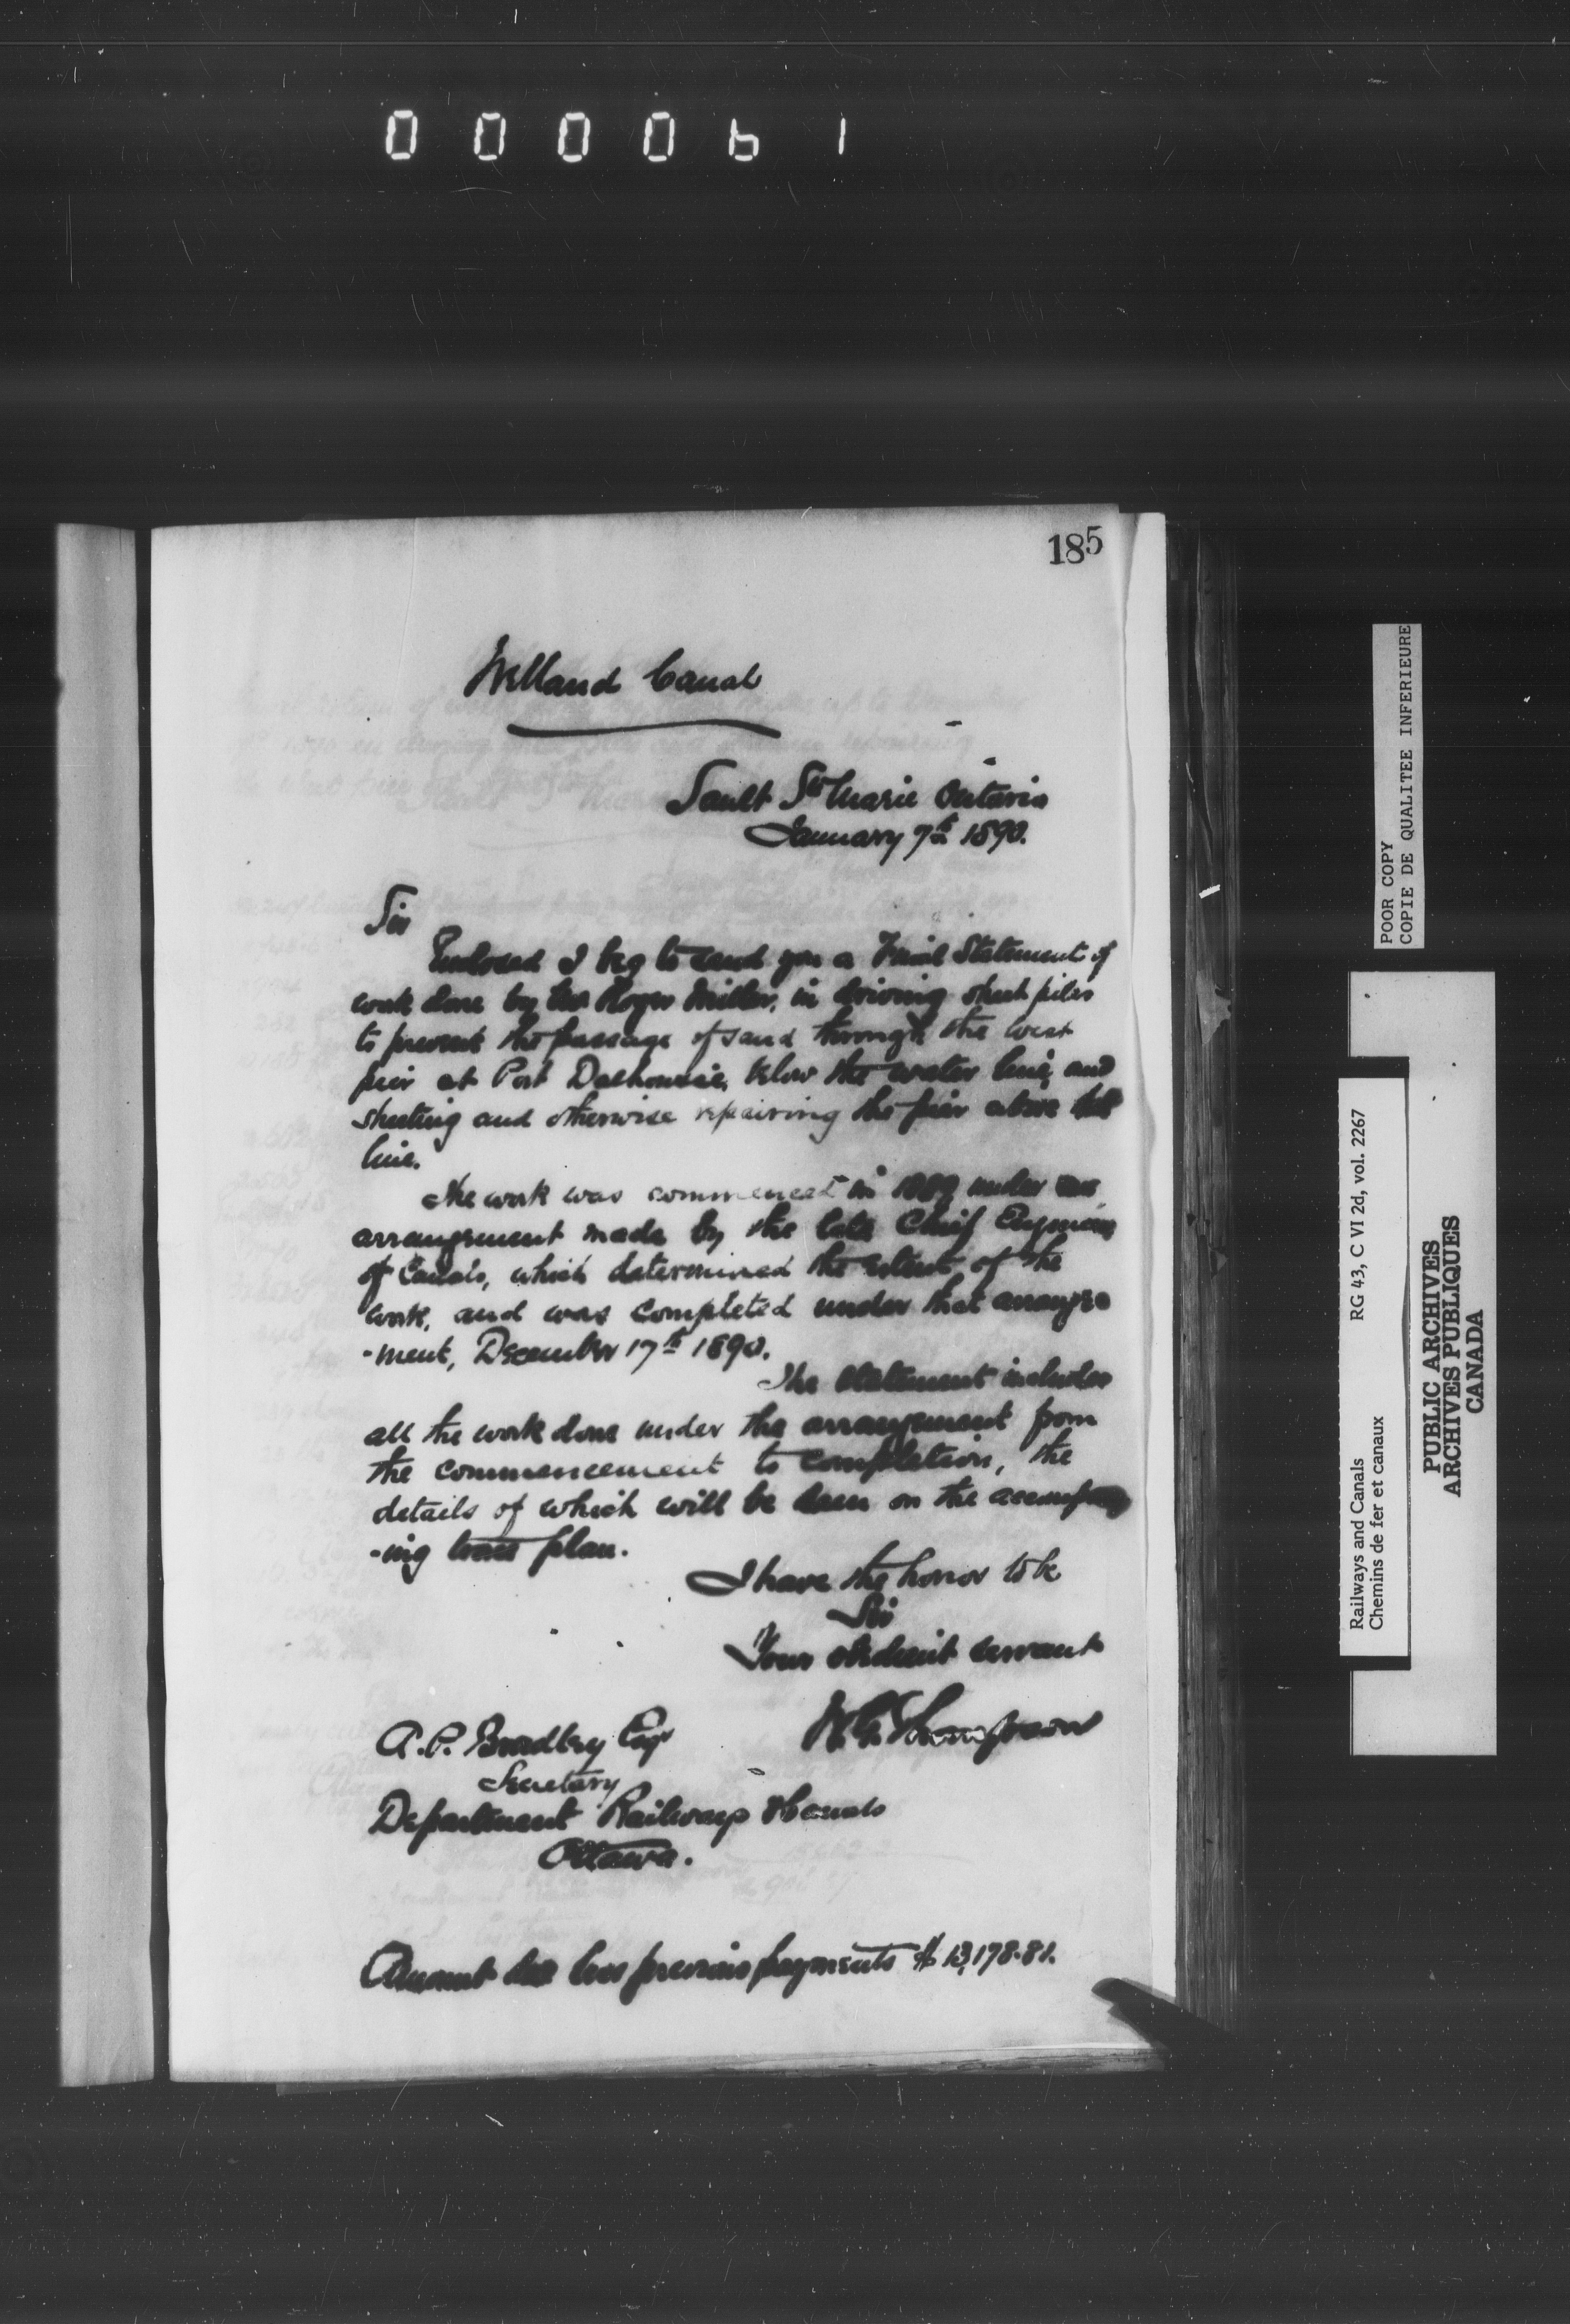 000061
185
Welland Canal
Sault Ste Marie Ontario
January 7th 1890.
Sir
Enclosed I beg to send you a Final Statement of
work done by Mr Roger Miller, in driving sheet piles
to prevent the passage of sand through the west
pier at Port Dalhousie, below the water line, and
sheeting and otherwise repairing the pier above that
line.
The work was commenced in 1889 under an
arrangement made by the late Chief Engineer
of Canals, which determined the extent of the
work, and was completed under that arrange
-ment, December 17th 1890.
The Statement includes
all the work done under the arrangement from
the commencement to completion, the
details of which will be seen on the accompany
-ing plan.
I have the honor to be
Sir
Your obedient servant
W.G. Thompson
A.P. Bradley Esqr
Secretary
Department Railways & Canals
Ottawa.
Amount due less previous payments $ 13,178.81.
POOR COPY
COPIE DE QUALITEE INFERIEURE
RG 43, C VI 2d, vol. 2267
Railways and Canals
Chemins de fer et canaux
PUBLIC ARCHIVES
ARCHIVES PUBLIQUES
CANADA